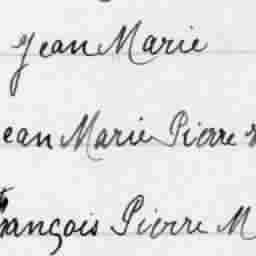 Jean Marie
Jean Marie Pierre
François Pierre M